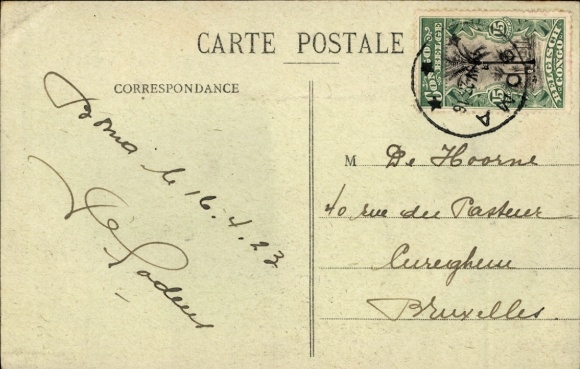 CARTE POSTALE
CORRESPONDANCE
Boma le 16.4.23
CONGO BELGE
BELGISCH CONGO
15 15
BOMA
M De Hoorne
40 rue du Pasteur
Cureghem
Bruxelles.